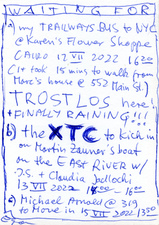 WAITING FOR
a) my TRAILWAYS BUS to NYC
@ Karen's Flower Shoppe
CAIRO 12 VII 2022 1620
(it took 15 mins to walk from
Mora's house @ 552 Main St.)
TROSTLOS here!
+ FINALLY RAINING!!!
b) the XTC to kick in
on Martin Zauner's boat
on the EAST RIVER w/
J.S. + Claudia Jadlochi
13 VII 2022 1500 - 1600
c) Michael Arnold @ 319
to Move in 15 VII 2022 1300